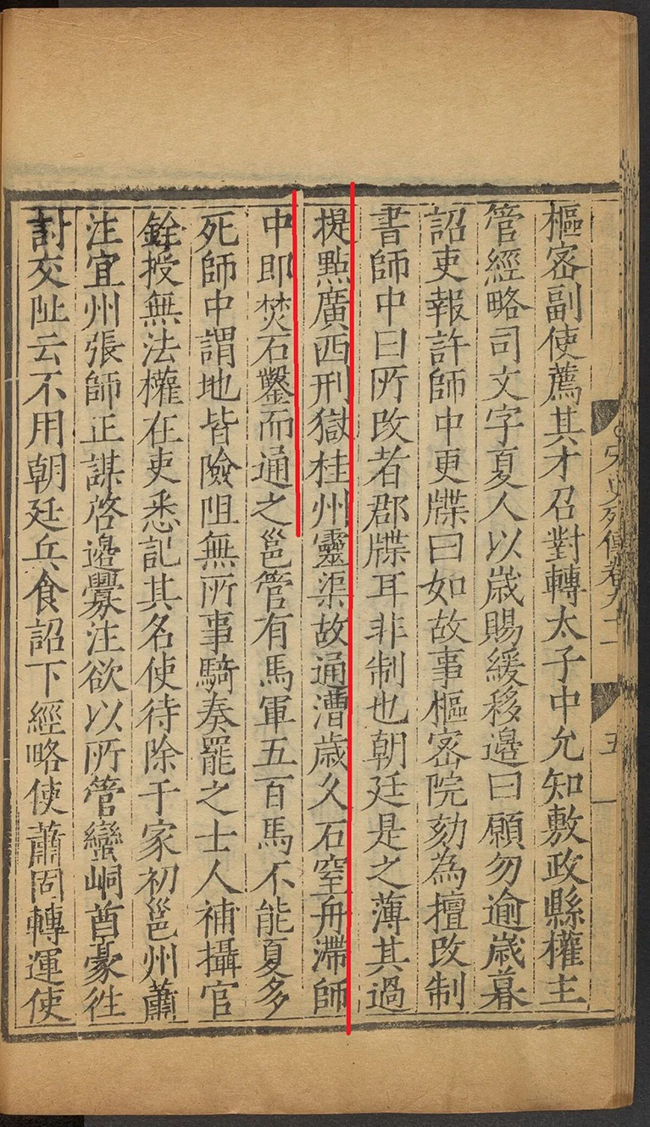 宋史列傳卷九十一
五
樞密副使薦其才召對轉太子中允知敷政縣權主
管經略司文字夏人以歲賜緩移邊曰願勿逾歲暮
詔吏報許師中更牒曰如故事樞密院劾為擅改制
書師中曰所改者郡牒耳非制也朝廷是之薄其過
提點廣西刑獄桂州靈渠故通漕歲久石窒舟滯師
中即焚石鑿而通之邕管有馬軍五百馬不能夏多
死師中謂地皆險阻無所事騎奏罷之士人補攝官
銓授無法權在吏悉記其名使待除于家初邕州蕭
注宜州張師正謀啓邊釁注欲以所管蠻峒酋豪往
討交阯云不用朝廷兵食詔下經略使蕭固轉運使